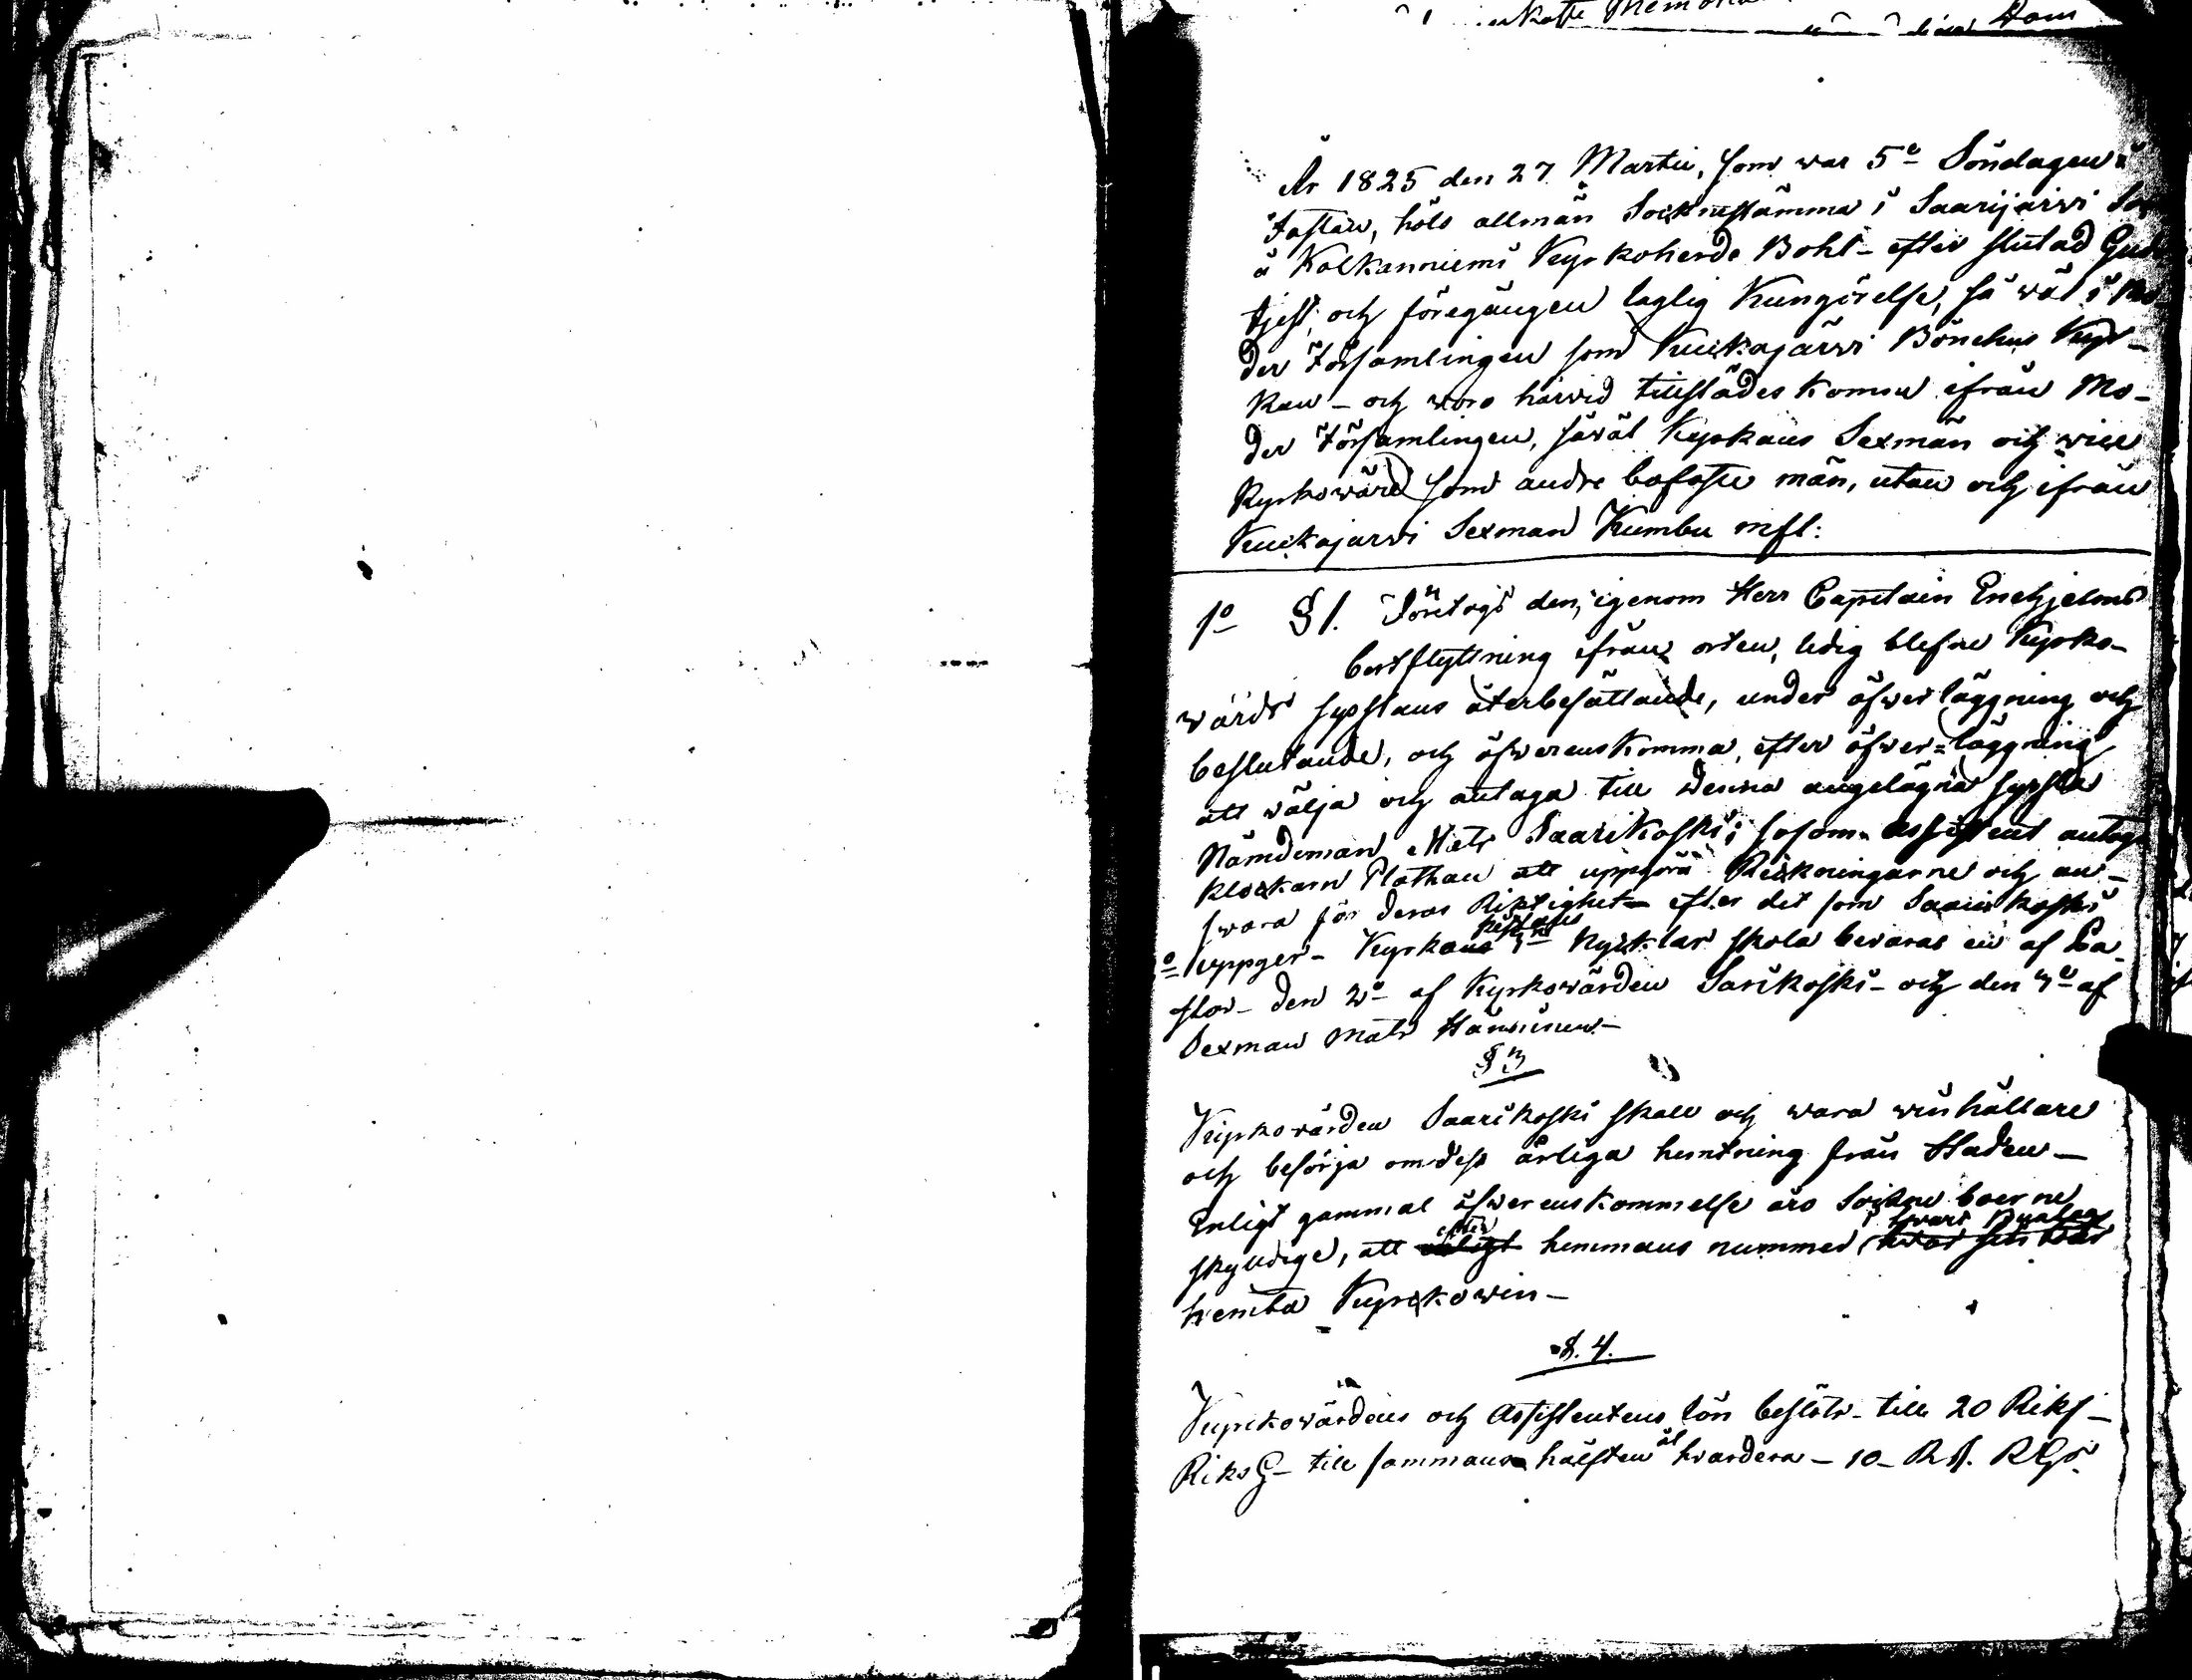 År 1825 den 27 Martii, som war 5e Söndagen i
Fastan, höls allmän Socknestämma i Saarijärvi
å Kolkanniemi Kyrkoherde Bohl - efter slutad Gud
tjest, och föregången laglig Kungörelse, så wäl i Mo
der Församlingen som Kuikajärvi Bönehus Kyr-
kan - och woro härvid tillstädes komne ifrån Mo-
der Församlingen, såväl Kyrkans Sexmän och
Kyrkowärd som andre bofaste män, utan och ifrån
Kuikajarvi Sexman Kumbu mfl:
1o § 1. Företogs den, igenom Herr Capitain Enehjelms
bortflyttning ifrån orten, ledig blefne Kyrko-
wärds sysslans återbesättande, under öfwerläggning och
beslutande, och öfwerenskomma, efter öfwer=läggning
att wälja och antaga till denna angelägna syssla
Nämdeman Mats Saarikoski; sosom Assistent antogs
klockarn Plathan att uppgöra Räkningarne och an-
swara för deras Riktighet - efter det som Saarikoski
uppger - Kyrkans kistans 3ne Nycklar skola bevaras en af Pa-
stor - den 2e af Kyrkowärden Sarikoski - och den 3e af
Sexman Mats Hänninen -
§ 3
Kyrkowärden Saarikoski skall och wara winhållare
och besörja om dess årliga hemtning från Staden -
Enligt gammal öfwerenskommelse äro Sockneboerne
skyldige, att efter hemmans nummer i hwars Byalag
hemta Kyrckowin -
§. 4.
Kyrckowärdens och Assistentens lön bestås - till 20 Riks-
Riks G - till sammans hälften åt hwardera - 10 - Rd. RGs